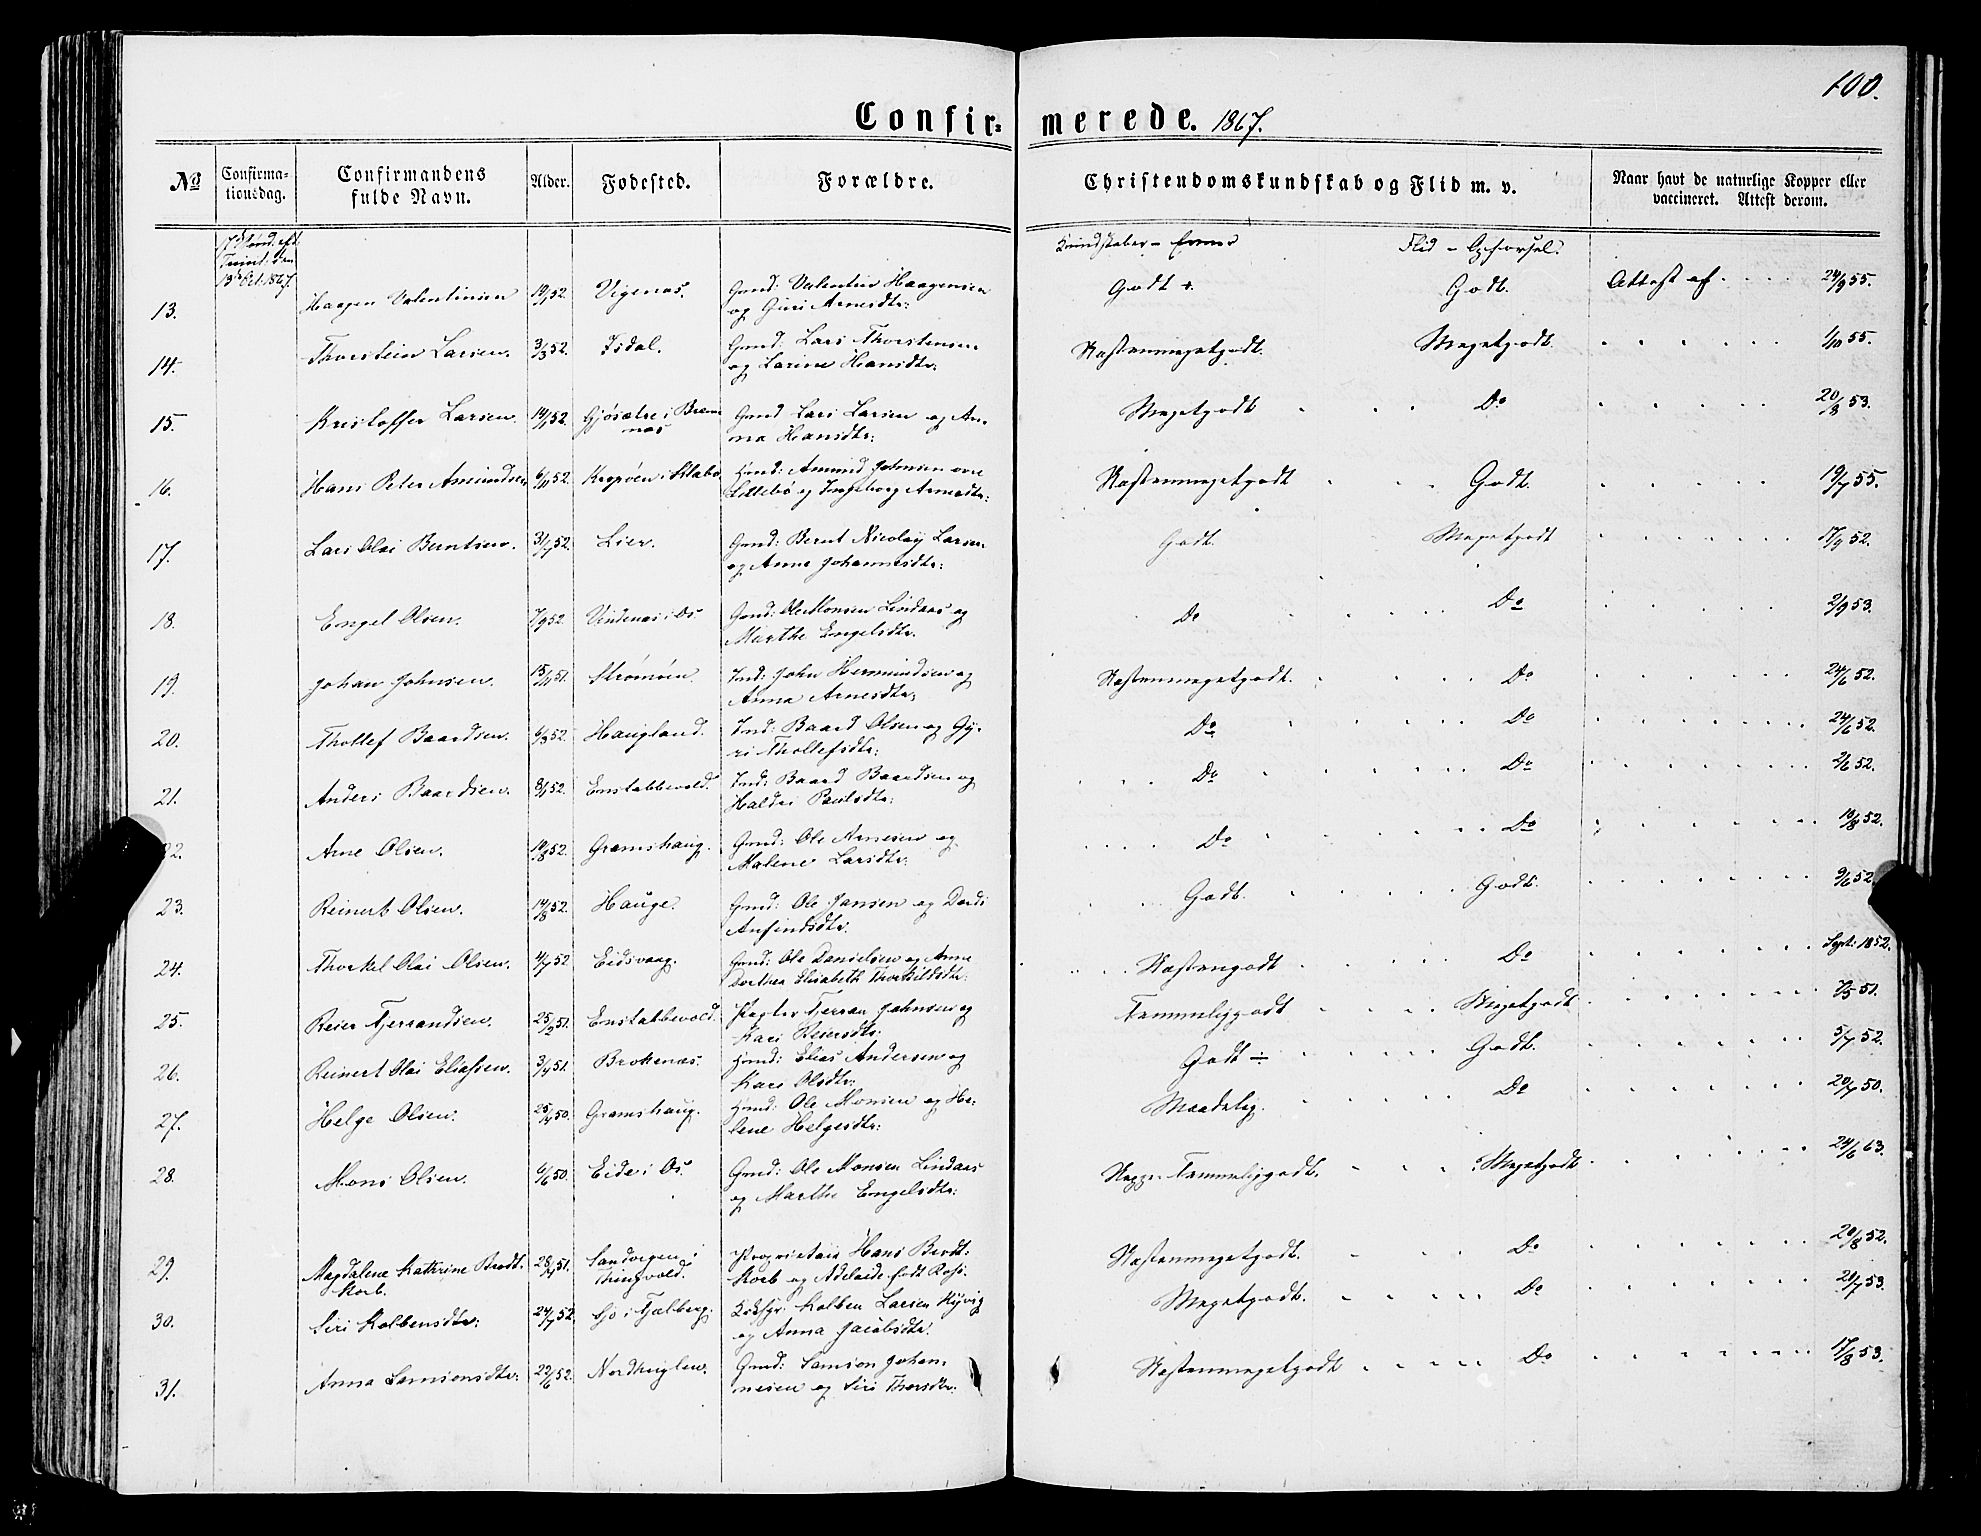 100.
Confirmerede. 1867.
No Confirmationsdag. Confirmandens fulde Navn. Alder. Fødested. Forældre. Christendomskundskab og Flid m. v. Naar havt de naturlige Kopper eller vaccineret. Attest derom.
17 Sønd. eft. Trinit. den 13de Oct. 1867.
Kundskaber Flid Opførsel.
13. Haagen Valentinsen 52. Vigenæs. Gmd: Valentin Haagensen og Guri Arnesdtr: Godt +. Godt. Attest af 24/9 55.
14. Thorstein Larsen. 3/3 52. Isdal. Gmd: Lars Thorstensen og Larine Hansdtr: Næstenmegetgodt. Megetgodt. 1/10 55.
15. Kristoffer Larsen. 14/1 52. Gjøsætre i Bremnæs Gmd Lars Larsen og Anna Hansdtr: Megetgodt Do 20/8 53.
16. Hans Peter Amundsen 6/11 52. i Gmd: Amund Johnsen Lillebø og Ingeborg Arnesdtr: Næstenmegetgodt Godt. 19/7 55.
17. Lars Olai Berntsen. 3/7 52. Lier. Gmd: Bernt Nicolay Larsen og Anna Johannesdtr: Godt. Megetgodt 17/9 52.
18. Engel Olsen. 7/9 52. Vindenæs i Os. Gmd: Ole Monsen Lindaas og Marthe Engelsdtr. Do Do 2/9 53.
19. Johan Johnsen. 15/11 51. Strømøen. Ind: John Hermundsen og Anna Arnesdtr, Næstenmegetgodt. Do 24/6 52.
20. Thollef Baardsen. 6/3 52. Haugland. Ind: Baard Olsen og Gyri Thollefsdtr: Do Do 24/6 52.
21. Anders Baardsen. 8/1 52. Enstabbevold. Ind: Baard Baardsen og Haldri Paulsdtr: Do Do 2/6 52.
22. Arne Olsen. 14/8 52. Gramshaug. Gmd: Ole Arnesen og Malene Larsdtr. Do Do 10/8 52.
23. Reinert Olsen. 14/8 52. Hauge. Gmd: Ole Jansen og Dordi Anfindsdtr. Godt. Godt. 9/6 52.
24. Thorkel Olai Olsen. 4/7 52 Eidsvaag. Gmd: Ole Danielsen og Anne Dorthea Elisabeth Thorkildsdtr: Næstengodt Do Sept: 1852.
25. Reier Fjerrandsen. 25/2 51. Enstabbevold. Fjerran Johnsen og Kari Reiersdtr: Temmeliggodt Megetgodt 7/5 51.
26. Reinert Olai Eliassen. 3/4 51. Brokenæs. Hmd: Elias Andersen og Kari Olsdtr: Godt ÷ Godt. 5/7 52.
27. Helge Olsen. 25/4 50. Gramshaug. Hmd: Ole Monsen og Helene Helgesdtr: Maadelig. Do 20/7 50.
28. Mons Olsen. 6/6 50. Eide i Os. Gmd: Ole Monsen Lindaas og Marthe Engelsdtr: Neppe Temmeliggodt. Megetgodt 24/6 63.
29. Magdalene Kathrine Brodtkorb. 51. i Thingvold. Proprietair Hans Brodtkorb og Adelaide født Ross. Næstenmegetgodt. Do 20/8 52.
30. Siri Kolbensdtr: 24/7 52. i Fjelberg. Kolben Larsen Kyvig og Anna Jacobsdtr. Megetgodt. Do 20/7 53.
31. Anna Samsonsdtr: 22/6 52. Nordhuglen. Gmd: Samson Johannesen og Siri Thorsdtr: Næstenmegetgodt Do 17/8 53.